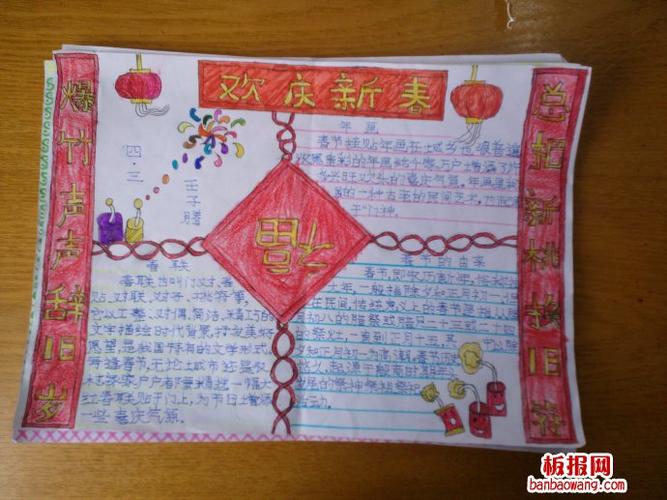 欢庆新春
爆竹声声辞旧岁
总把新桃换旧符
四·三
福
年画
春节挂贴年画在城乡也很普遍
浓墨重彩的年画给千家万户增添了许
多兴旺欢乐的喜庆气氛,年画是我
国的一种古老的民间艺术,
于"门神。
春联
春联也叫门对、春
贴、对联、对子、桃符等,
它以工整、对偶、简洁、精巧的
文字描绘时代背景,抒发美好
愿望,是我国特有的文学形式。
每逢春节,无论城市还是农
村,家家户户都要精选一幅大
红春联贴于门上,为节日增添
一些喜庆气氛。
春节的由来
春节,即农历新年,
一年,一般指除夕和正月初一。但
在民间,传统意义上的春节是指从腊
月初八的腊祭或腊月二十三或二十四
的祭灶,一直到正月十五,其中以除
夕和正月初一为高潮。春节历
史悠久,起源于殷商时期年头
岁尾的祭神祭祖
活动。
板报网
banbaowang.com